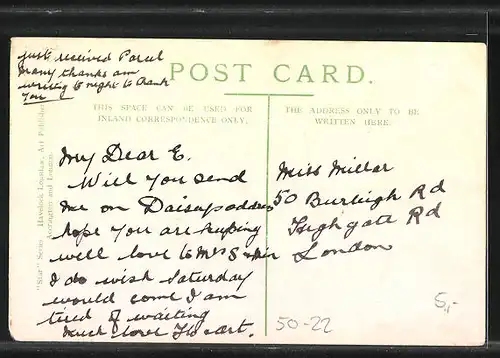 just received Parcel
many thanks am
writing to night to thank
you
POST CARD.
THIS SPACE CAN BE USED FOR
INLAND CORRESPONDENCE ONLY.
THE ADDRESS ONLY TO BE
WRITTEN HERE.
My Dear E.
Will you send
me on Daisys address
hope you are keeping
well love to Mrs S &
I do wish Saturday
would come I am
tired of waiting
much love
Miss Millar
50 Burleigh Rd
Highgate Rd
London
"Star" Series. Art Publishers
Accrington and London.
50-22
5,-